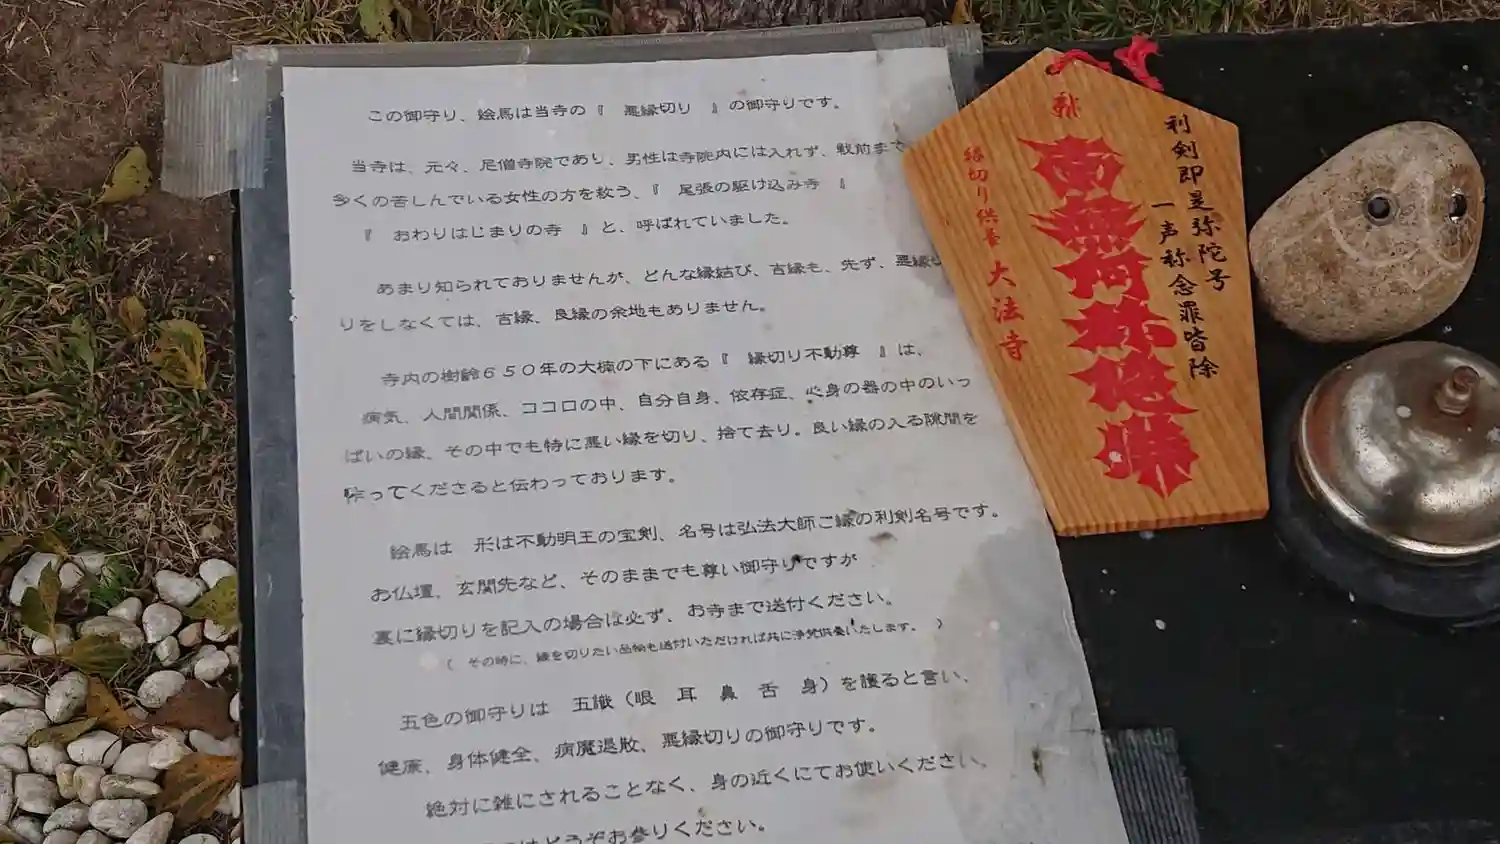 この御守り、絵馬は当寺の『 悪縁切り 』の御守りです。
当寺は、元々、尼僧寺院であり、男性は寺院内には入れず、戦前まで
多くの苦しんでいる女性の方を救う、『 尾張の駆け込み寺 』
『 おわりはじまりの寺 』と、呼ばれていました。
あまり知られておりませんが、どんな縁結び、吉縁も、先ず、悪縁切
りをしなくては、吉縁、良縁の余地もありません。
寺内の樹齢650年の大楠の下にある『 縁切り不動尊 』は、
病気、人間関係、ココロの中、自分自身、依存症、心身の器の中のいっ
ぱいの縁、その中でも特に悪い縁を切り、捨て去り。良い縁の入る隙間を
作ってくださると伝わっております。
絵馬は 形は不動明王の宝剣、名号は弘法大師ご縁の利剣名号です。
お仏壇、玄関先など、そのままでも尊い御守りですが
裏に縁切りを記入の場合は必ず、お寺まで送付ください。
( その時に、縁を切りたい品物も送付いただければ共に浄焚供養いたします。 )
五色の御守りは 五識(眼 耳 鼻 舌 身)を護ると言い、
健康、身体健全、病魔退散、悪縁切りの御守りです。
絶対に雑にされることなく、身の近くにてお使いください。
はどうぞお参りください。
利剣即是弥陀号
一声称念罪皆除
南無阿弥陀佛
縁切り供養 大法寺